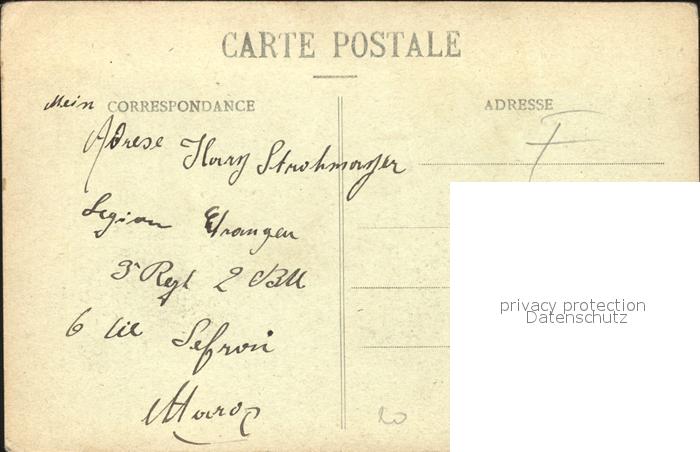 CARTE POSTALE
Mein CORRESPONDANCE
ADRESSE
Adrese Harry Strohmayer
Legion Etranger
3e Regt 2 Bll
6 Cie Sefrou
Maroc
20
privacy protection
Datenschutz